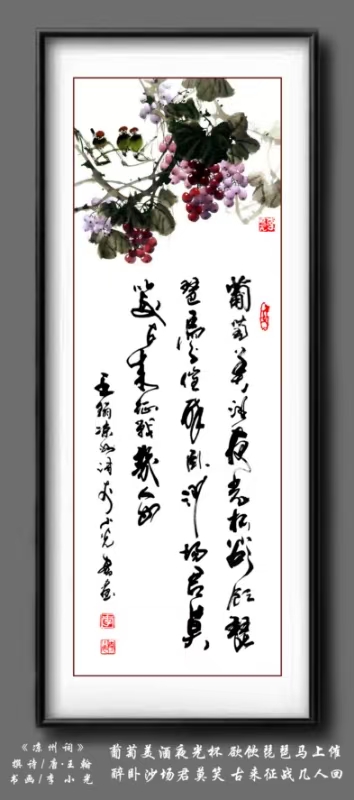 葡萄美酒夜光杯欲饮琵
琶马上催醉卧沙场君莫
笑古来征战几人回
王翰凉州词李小光书画
《凉州词》
撰诗/唐·王翰
书画/李小光
葡萄美酒夜光杯 欲饮琵琶马上催
醉卧沙场君莫笑 古来征战几人回